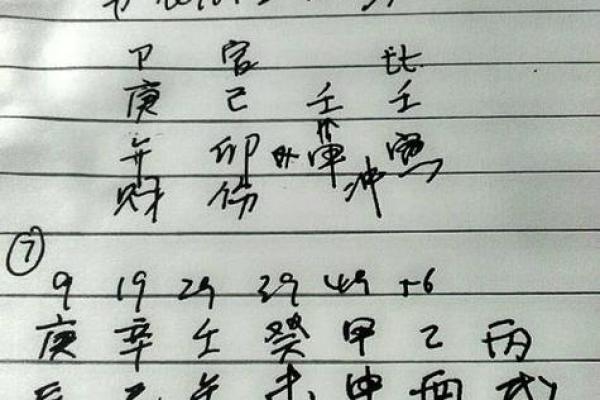 卩 官 比
庚 己 壬 壬
午 卯 申 寅
财 伤 冲
⑦
9 19 29 39 49
庚 辛 壬 癸 甲 乙 丙
辰 巳 午 未 申 酉 戌